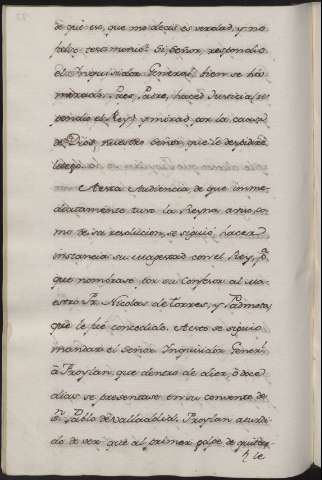 de qué es, que me decis es verdad, y no
falso testimonio? Si Señor, respondio
el Inquisidor General, bien se ha
mirado. Pues Padre, haced Justicia, res
pondio el Rey, y mirad por la causa
de Dios nuestro Señor, que le despidiré
luego.
A esta Audiencia, de que inme
diatamente tuvo la Reyna aviso, co
mo de su resolucion, se siguio, hacer
instancia su magestad con el Rey, pª
que nombrase por su Confesor al ma
estro Fr. Nicolas de torres, y Padmota,
que le fué concedido. A esto se siguio
mandar el Señor Inquisidor Generl
â Froylan, que dentro de diez, ó doce
dias se presentase en su convento de
Sn Pablo de Valladolid. Froylan asusta
do de ver que al primer golpe de quitar
le